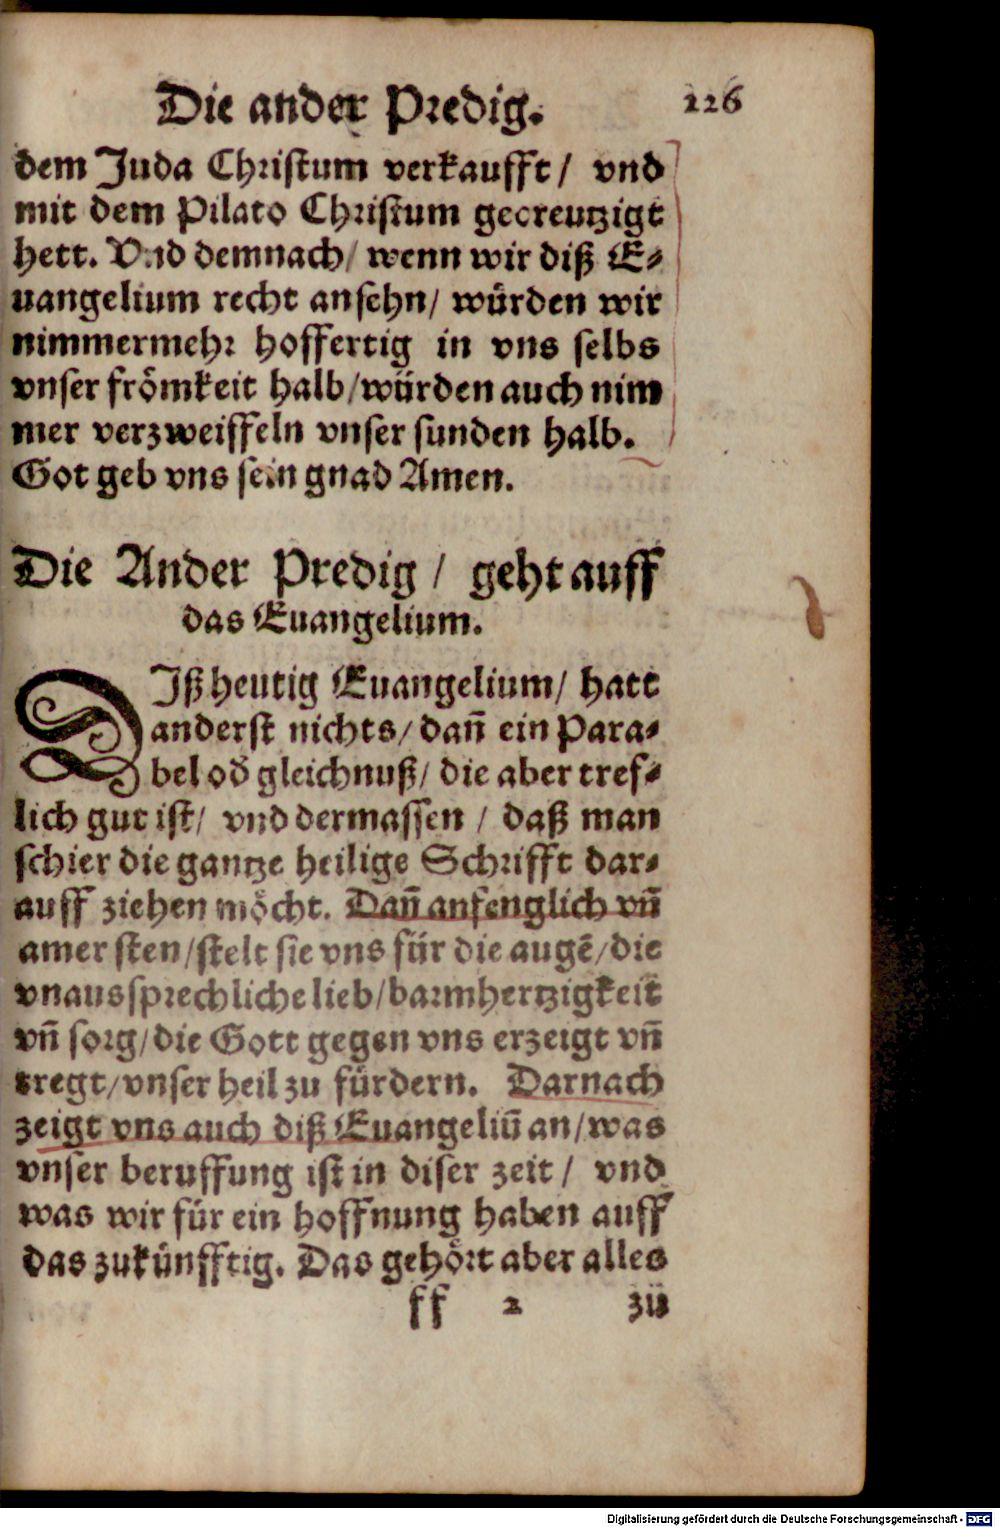 Die ander Predig. 226
dem Juda Christum verkaufft / vnd
mit dem Pilato Christum gecreutzigt
hett. Vnd demnach / wenn wir diß E⸗
uangelium recht ansehn / würden wir
nimmermehr hoffertig in vns selbs
vnser frömkeit halb / würden auch nim
mer verzweiffeln vnser sunden halb.
Got geb vns sein gnad Amen.
Die Ander Predig / geht auff
das Euangelium.
DJß heutig Euangelium / hatt
anderst nichts / dañ ein Para⸗
bel od̄ gleichnuß / die aber tref⸗
lich gut ist / vnd dermassen / daß man
schier die gantze heilige Schrifft dar⸗
auff ziehen möcht. Dañ anfenglich vñ
amersten / stelt sie vns für die augẽ / die
vnaussprechliche lieb / barmhertzigkeit
vñ sorg / die Gott gegen vns erzeigt vñ
tregt / vnser heil zu fürdern. Darnach
zeigt vns auch diß Euangeliũ an / was
vnser beruffung ist in diser zeit / vnd
was wir für ein hoffnung haben auff
das zukünfftig. Das gehört aber alles
ff 2 zů
Digitalisierung gefördert durch die Deutsche Forschungsgemeinschaft - DFG